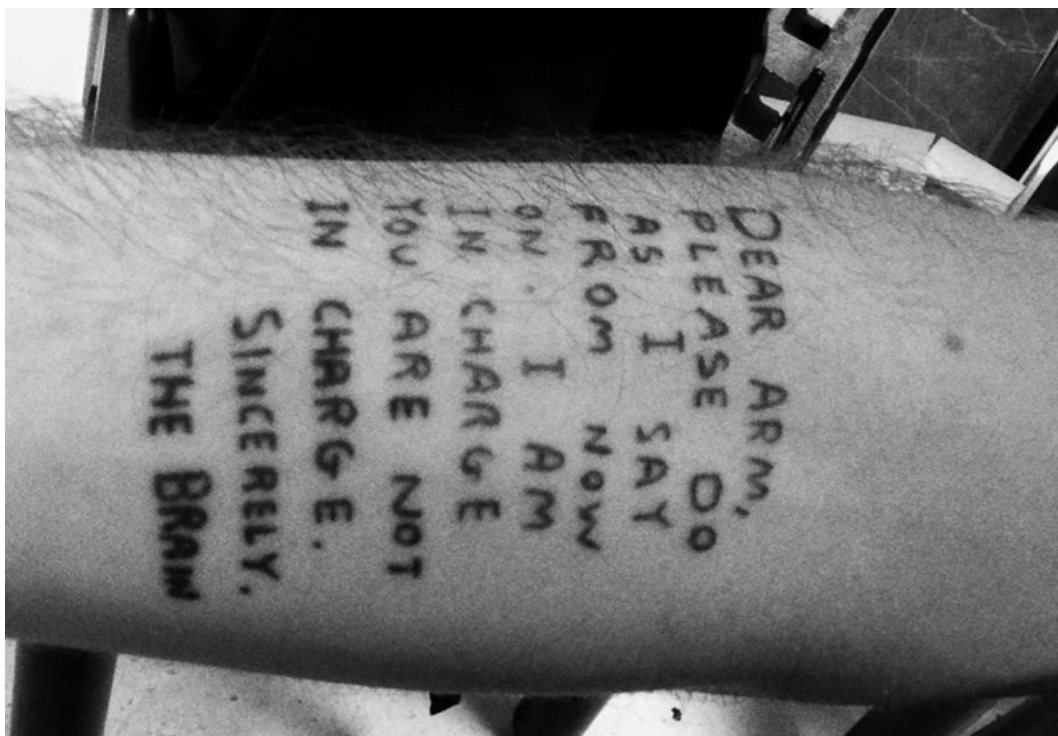 DEAR ARM,
PLEASE DO
AS I SAY
FROM NOW
ON. I AM
IN CHARGE
YOU ARE NOT
IN CHARGE.
SINCERELY,
THE BRAIN